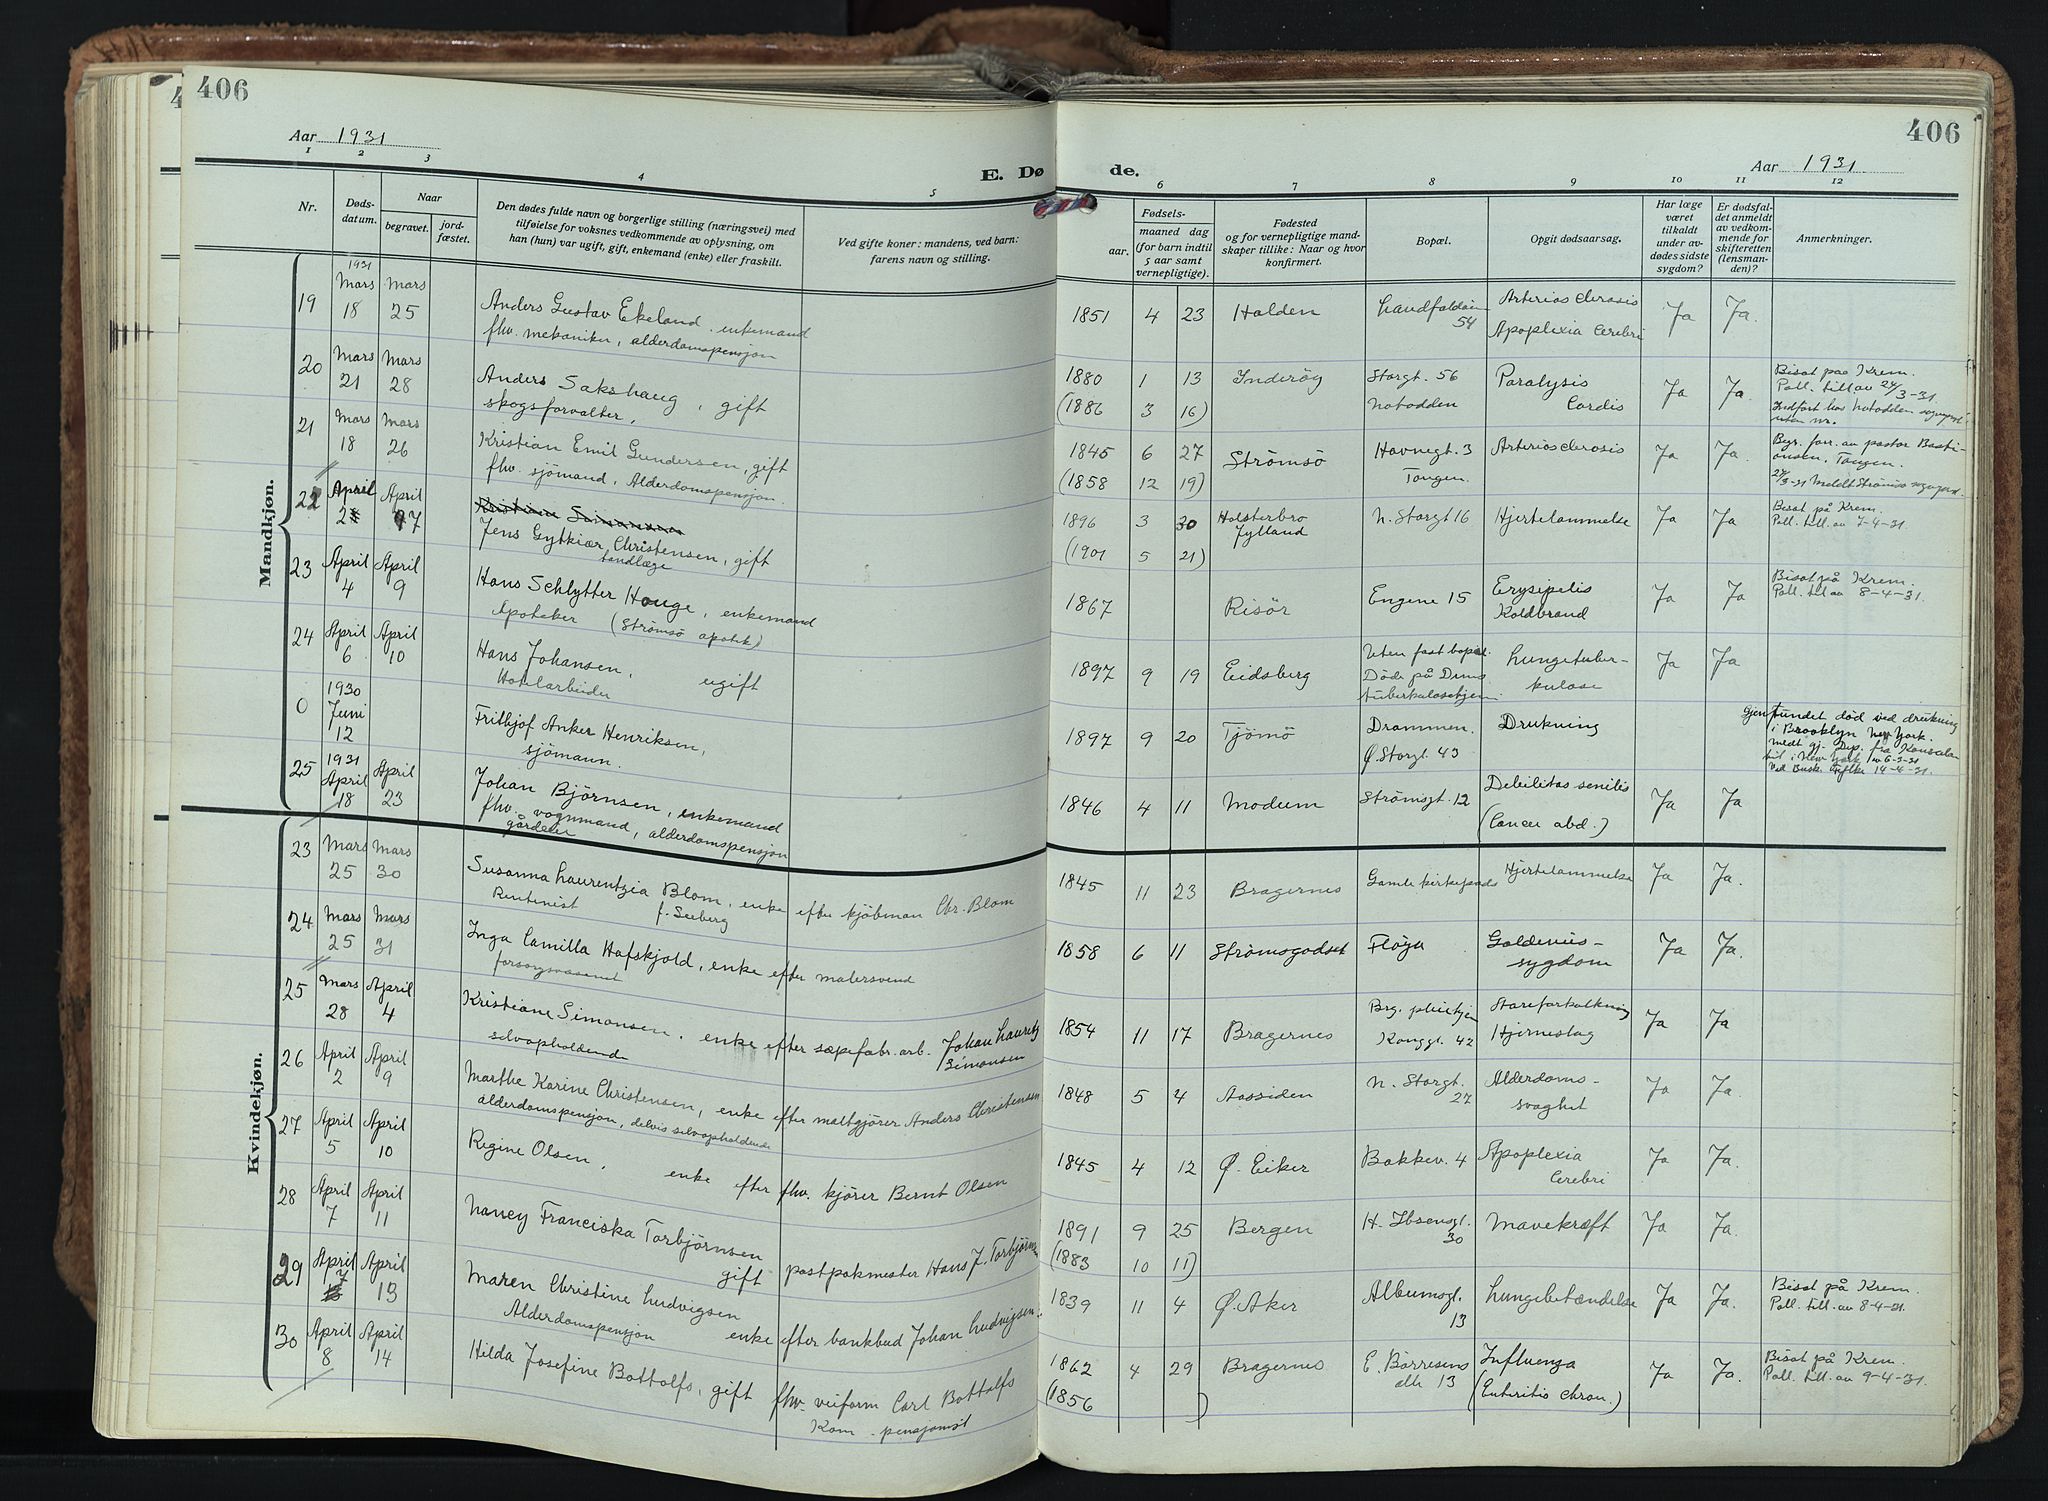 406
Aar 1931
1 2 3 4 5
E. Dø
Nr.
Døds-
datum.
Naar
begravet.
jord-
fæstet.
Den dødes fulde navn og borgerlige stilling (næringsvei) med
tilføielse for voksnes vedkommende av oplysning, om
han (hun) var ugift, gift, enkemand (enke) eller fraskilt.
Ved gifte koner: mandens, ved barn:
farens navn og stilling.
Mandkjøn.
19 1931 Mars 18 Mars 25 Anders Gustav Ekeland, enkemand
fhv. mekaniker, alderdomspensjon
20 Mars 21 Mars 28 Anders Sakshaug, gift
skogsforvalter,
21 Mars 18 Mars 26 Kristian Emil Gundersen, gift
fhv. sjömand, Alderdomspensjon.
22 April 2 April 7 Jens Gytkiær Christensen, gift
tandlæge
23 April 4 April 9 Hans Schlytter Hauge, enkemand
Apoteker (Strömsö apotek)
24 April 6 April 10 Hans Johansen, ugift
Hotelarbeider
0 1930 Juni 12 Frithjof Anker Henriksen,
sjömann.
25 1931 April 18 April 23 Johan Björnsen, enkemand
fhv. vognmand, alderdomspensjon
gårdeier
Kvindekjøn.
23 Mars 25 Mars 30 Susanna Laurentzia Blom, enke efter kjöbman Chr. Blom
Rentenist f. Seeberg
24 Mars 25 Mars 31 Inga Camilla Hafskjold, enke efter malersvend
forsorgsvæsenet
25 Mars 28 April 4 Kristiane Simonsen, enke efter sæpefabr. arb. Johan Lauretz
selvopholdende Simonsen
26 April 2 April 9 Marthe Karine Christensen, enke efter maltgjörer Anders Christensen
alderdomspensjon, delvis selvopholdende
27 April 5 April 10 Regine Olsen,
enke efter fhv. kjörer Bernt Olsen
28 April 7 April 11 Nancy Franciska Torbjörnsen
gift postpakmester Hans J. Torbjörnsen
29 April 7 April 13 Maren Christine Ludvigsen
Alderdomspensjon enke efter bankbud Johan Ludvigsen
30 April 8 April 14 Hilda Josefine Bottolfs, gift fhv. veiform Carl Bottolfs
Kom. pensjonist
406
de.
Aar 1931
6 7 8 9 10 11 12
Fødsels-
aar.
maaned dag
(for barn indtil
5 aar samt
vernepligtige).
Fødested
og for vernepligtige mand-
skaper tillike: Naar og hvor
konfirmert.
Bopæl.
Opgit dødsaarsag.
Har læge
været
tilkaldt
under av-
dødes sidste
sygdom?
Er dødsfal-
det anmeldt
av vedkom-
mende for
skifteretten
(lensman-
den)?
Anmerkninger.
1851 4 23 Halden Landfaldöen 54 Arteriosclerosis Ja Ja.
Apoplexia Cerebri
1880 1 13 Inderöy Storgt. 56 Paralysis Ja Ja. Bisat paa Krem.
Poll. till av 24/3-31.
(1886 3 16) Notodden Cordis Indfört hos Notodden sogneprest
uten nr.
1845 6 27 Strömsö Havnegt. 3 Arteriosclerosis Ja Ja. Begr. forr. av pastor Basti-
ansen, Tangen.
(1858 12 19) Tangen. 27/3-31 Meldt Strömsö sogneprest.
1896 3 30 Holsterbro N. Storgt 16 Hjertelammelse Ja Ja. Bisat på Krem.
Jylland Poll. till. av 7-4-31.
(1901 5 21)
1867 Risör Engene 15 Erysipelis Ja Ja Bisat på Krem.
Koldbrand Poll. till av 8-4-31.
1897 9 19 Eidsberg Uten fast bopæl. Lungetuber- Ja Ja
Döde på Drms kulose
tuberkulosehjem
1897 9 20 Tjömö Drammen. Drukning Gjen fundet död ved drukning
Ø. Storgt. 43 i Brooklyn New York.
1846 4 11 Modum Strömsgt. 12 Debilitas senilis Ja Ja
(Cancer abd.)
1845 11 23 Bragernes Gamle kirkeplads Hjertelammelse Ja Ja.
1858 6 11 Strömsgodset Flöya Galdeveis- Ja Ja.
sygdom
1854 11 17 Bragernes Brg. pleiehjem Åreforkalkning Ja Ja
Kongsgt. 42 Hjerneslag
1848 5 4 Aassiden N. Storgt. 27 Alderdoms- Ja Ja.
svaghet
1845 4 12 Ø. Eiker Bakkev. 4 Apoplexia Ja Ja.
Cerebri
1891 9 25 Bergen H. Ibsensgt. 30 Mavekræft Ja Ja.
(1883 10 11)
1839 11 4 Ø. Aker Albumsgt. 13 Lungebetændelse Ja Ja. Bisat på Krem.
Poll. till. av 8-4-31.
1862 4 29 Bragernes E. Börresens Influenza Ja Ja. Bisat på Krem.
alle 13 (Enteritis chron.) Poll. till. av 9-4-31.
(1856 )